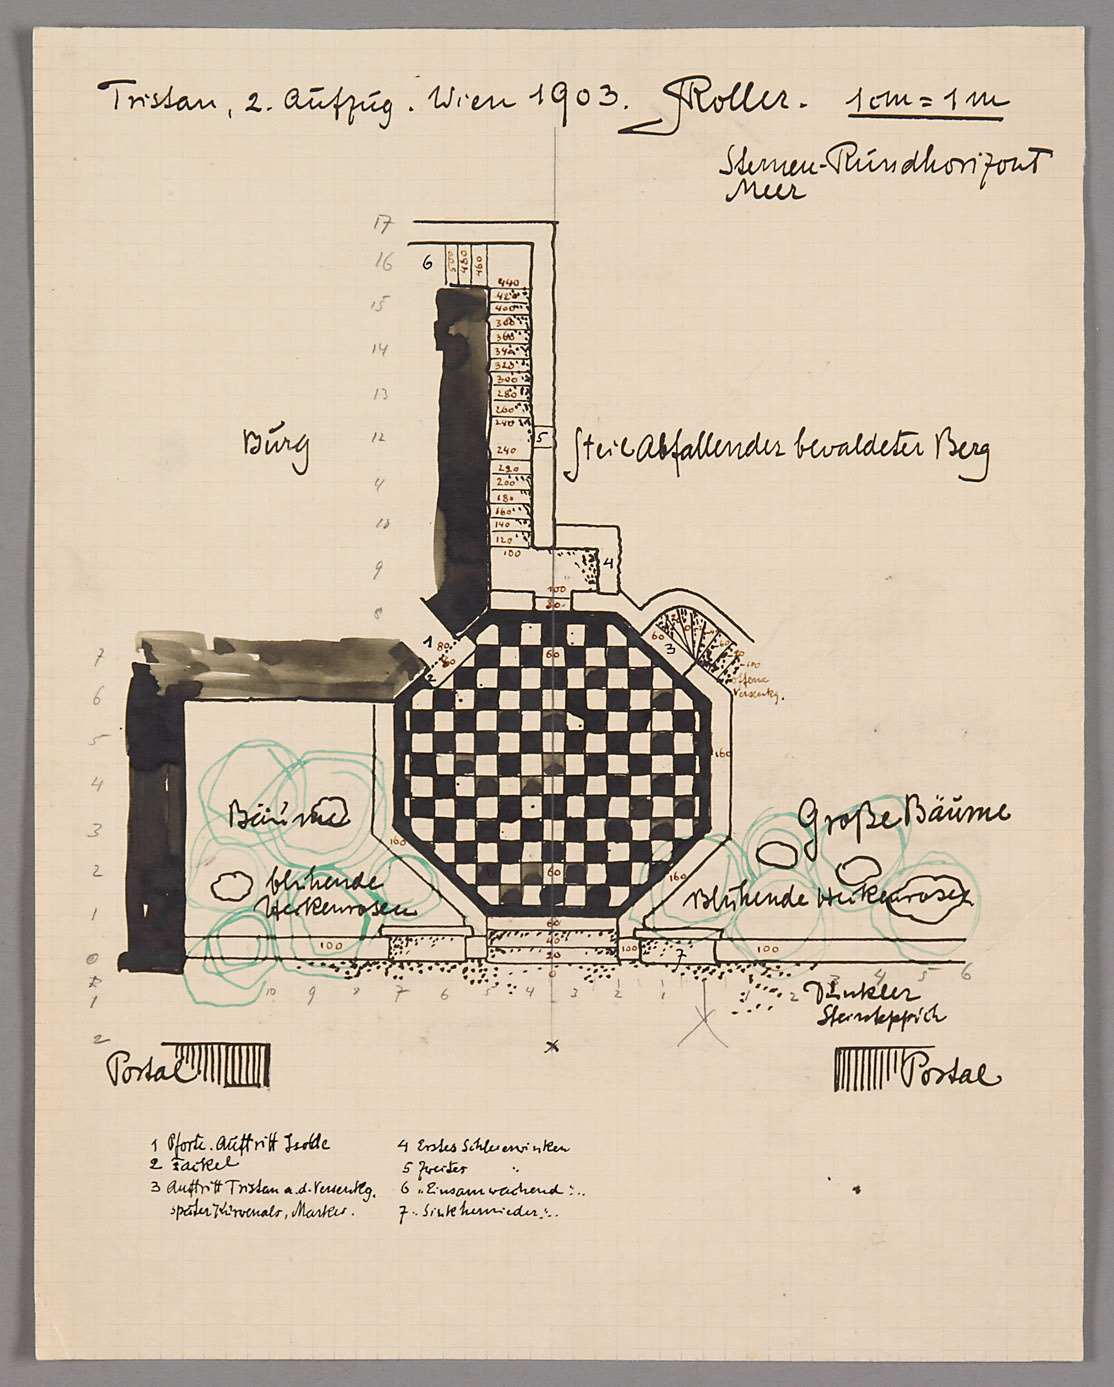 Tristan, 2. Aufzug. Wien 1903. Roller. 1 cm = 1 m
Sternen-Rundhorizont
Meer
17
16 6 500 480 460
440
15 420
400
380
14 360
340
320
300
13 280
260
240
12 5
Burg
Steil Abfallender bewaldeter Berg
240
220
200
180
160
140
120
100
9 4
100
80
8
1 80
60
2
60
3
60
offene
Versenkg.
7
6
5
160
4
Bäume
Große Bäume
3
160
2
blühende
Heckenrosen
60
160
Blühende Heckenrosen
1
60
40
20
0
100
100
7
100
0
1
2
10 9 8 7 6 5 4 3 2 1 2 3 4 5 6
Dunkler
Steinteppich
Portal
Portal
1 Pforte. Auftritt Isolde
2 Fackel
3 Auftritt Tristan a. d. Versenkg.
später Kurwenals, Markes.
4 Erstes Schleierwinken
5 Zweites "
6 "Einsam wachend"..
7 "Sink hernieder"..